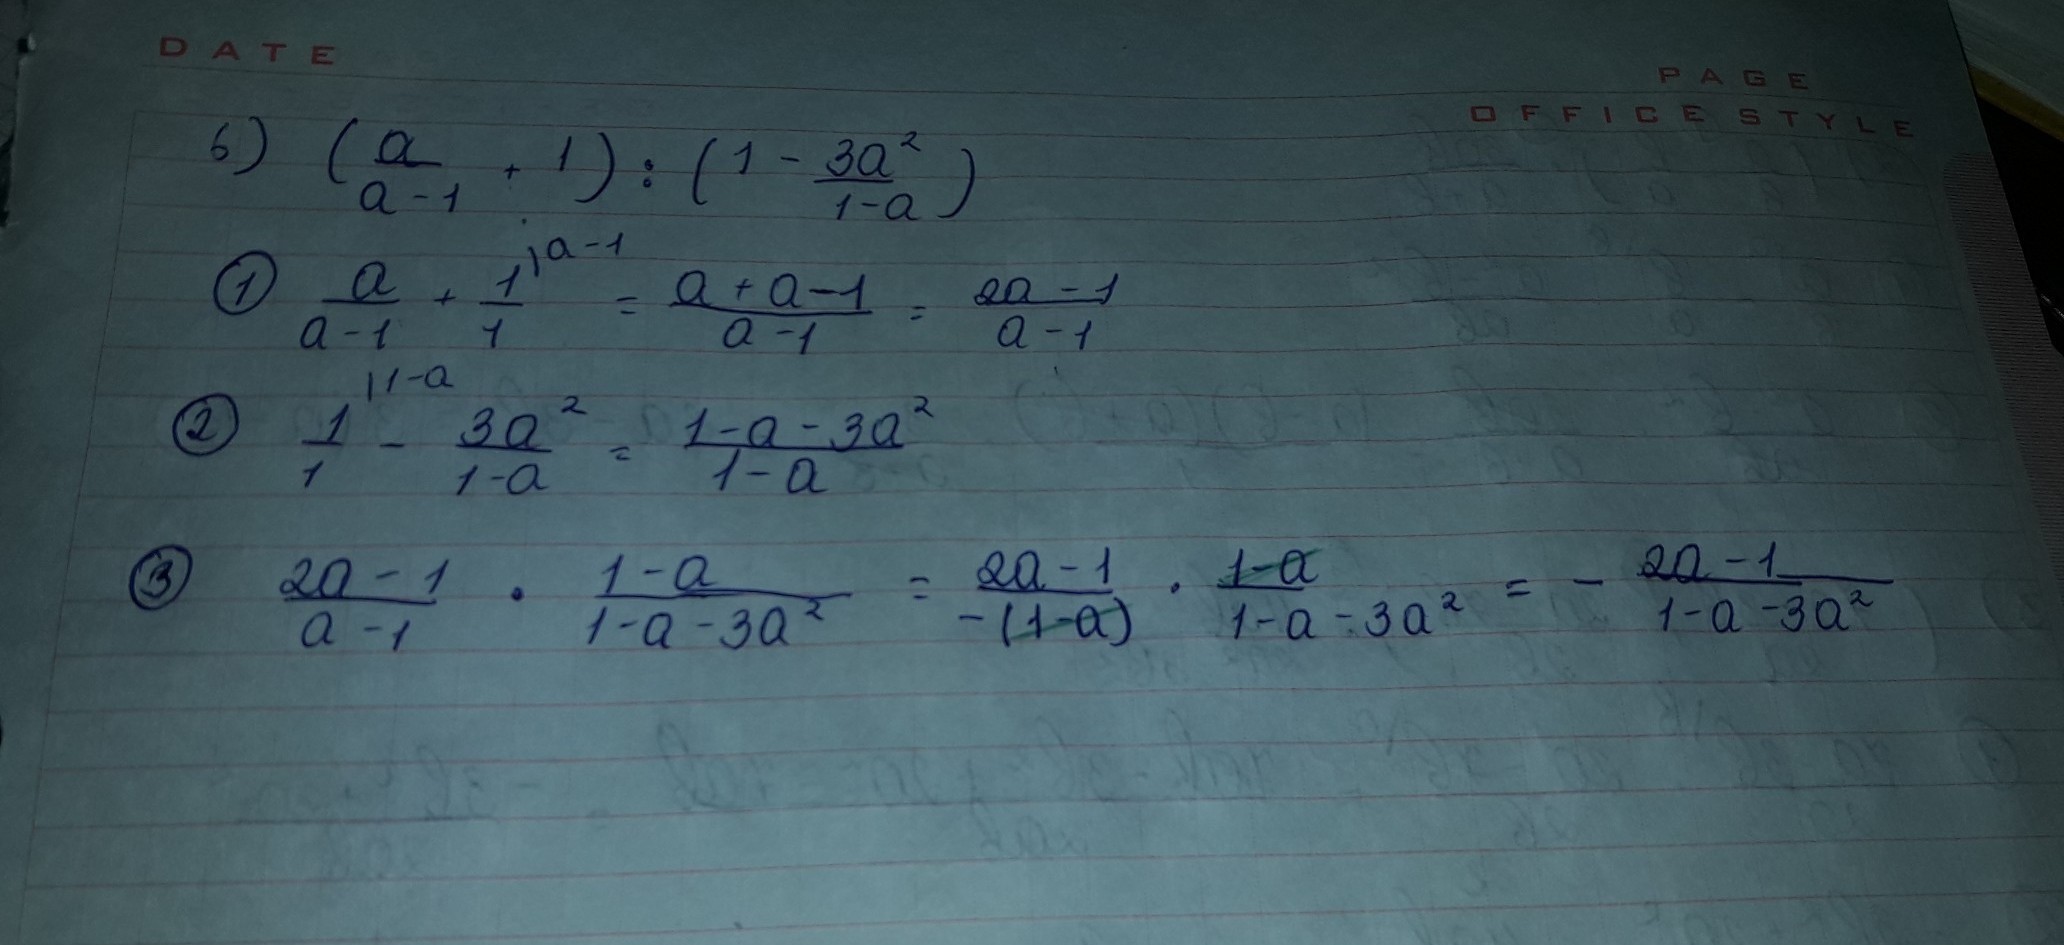 DATE
PAGE
OFFICE STYLE
6) (a/(a-1) + 1) : (1 - 3a²/(1-a))
① a/(a-1) + 1/1 ⁾ᵃ⁻¹ = (a+a-1)/(a-1) = (2a-1)/(a-1)
② 1/1 ⁾¹⁻ᵃ - 3a²/(1-a) = (1-a-3a²)/(1-a)
③ (2a-1)/(a-1) · (1-a)/(1-a-3a²) = (2a-1)/(-(1-a)) · (1-a)/(1-a-3a²) = - (2a-1)/(1-a-3a²)